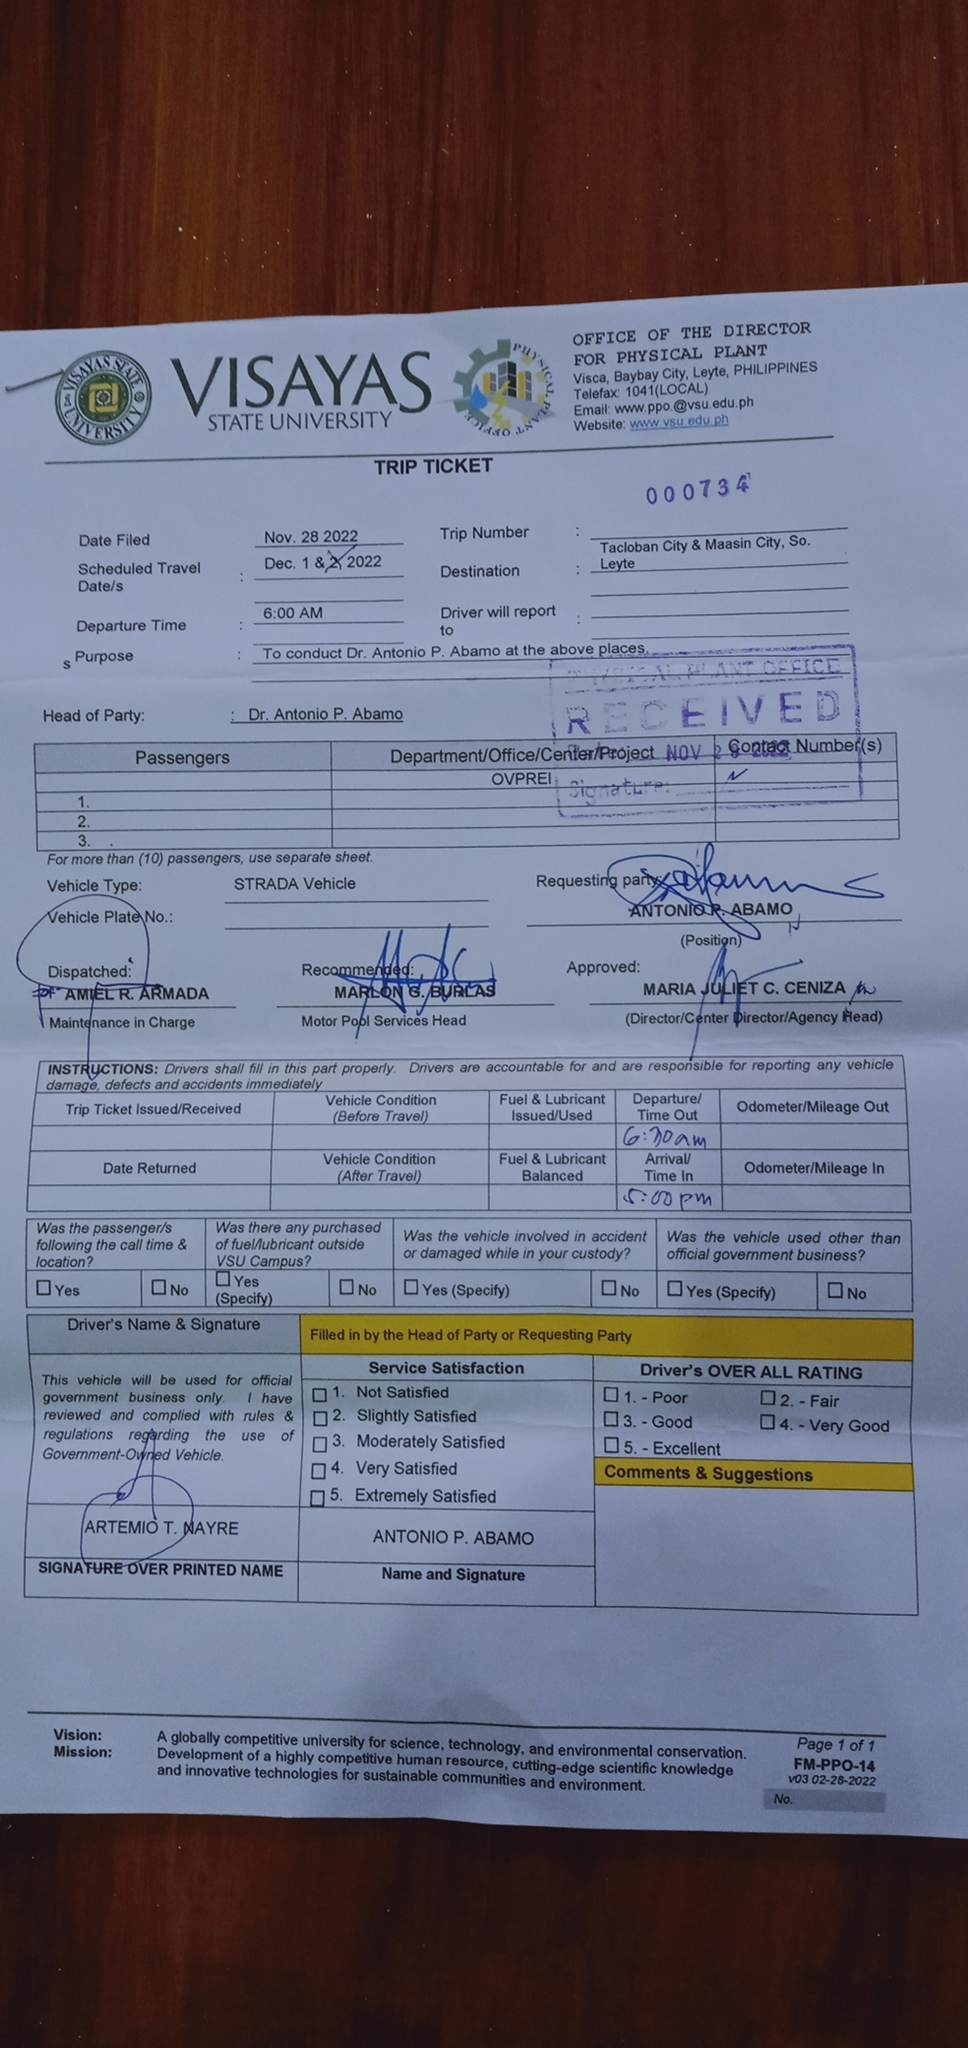 VISAYAS STATE UNIVERSITY
VISAYAS
STATE UNIVERSITY
PHYSICAL PLANT OFFICE
OFFICE OF THE DIRECTOR
FOR PHYSICAL PLANT
Visca, Baybay City, Leyte, PHILIPPINES
Telefax: 1041(LOCAL)
Email: www.ppo.@vsu.edu.ph
Website: www.vsu.edu.ph
TRIP TICKET
000734
Date Filed Nov. 28 2022 Trip Number :
Scheduled Travel Date/s : Dec. 1 & 2, 2022 Destination : Tacloban City & Maasin City, So. Leyte
Departure Time : 6:00 AM Driver will report to :
s Purpose : To conduct Dr. Antonio P. Abamo at the above places.
PHYSICAL PLANT OFFICE
RECEIVED
NOV 28 2022
Signature:
Head of Party: : Dr. Antonio P. Abamo
Passengers Department/Office/Center/Project Contact Number(s)
OVPREI
1.
2.
3. .
For more than (10) passengers, use separate sheet.
Vehicle Type: STRADA Vehicle Requesting party:
Vehicle Plate No.: ANTONIO P. ABAMO
(Position)
Dispatched: Recommended: Approved:
AMIEL R. ARMADA MARLON G. BURLAS MARIA JULIET C. CENIZA
Maintenance in Charge Motor Pool Services Head (Director/Center Director/Agency Head)
INSTRUCTIONS: Drivers shall fill in this part properly. Drivers are accountable for and are responsible for reporting any vehicle
damage, defects and accidents immediately
Trip Ticket Issued/Received Vehicle Condition (Before Travel) Fuel & Lubricant Issued/Used Departure/ Time Out Odometer/Mileage Out
6:30am
Date Returned Vehicle Condition (After Travel) Fuel & Lubricant Balanced Arrival/ Time In Odometer/Mileage In
5:00 pm
Was the passenger/s following the call time & location? Was there any purchased of fuel/lubricant outside VSU Campus? Was the vehicle involved in accident or damaged while in your custody? Was the vehicle used other than official government business?
Yes No Yes (Specify) No Yes (Specify) No Yes (Specify) No
Driver's Name & Signature Filled in by the Head of Party or Requesting Party
This vehicle will be used for official
government business only. I have
reviewed and complied with rules &
regulations regarding the use of
Government-Owned Vehicle.
Service Satisfaction
1. Not Satisfied
2. Slightly Satisfied
3. Moderately Satisfied
4. Very Satisfied
5. Extremely Satisfied
Driver's OVER ALL RATING
1. - Poor 2. - Fair
3. - Good 4. - Very Good
5. - Excellent
Comments & Suggestions
ARTEMIO T. NAYRE ANTONIO P. ABAMO
SIGNATURE OVER PRINTED NAME Name and Signature
Vision: A globally competitive university for science, technology, and environmental conservation.
Mission: Development of a highly competitive human resource, cutting-edge scientific knowledge
and innovative technologies for sustainable communities and environment.
Page 1 of 1
FM-PPO-14
v03 02-28-2022
No.